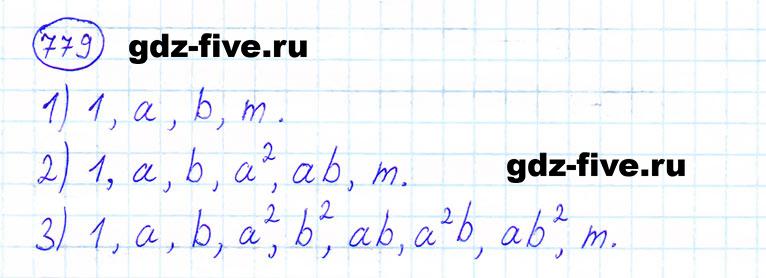 779 gdz-five.ru
1) 1, a, b, m.
2) 1, a, b, a², ab, m.
gdz-five.ru
3) 1, a, b, a², b², ab, a²b, ab², m.